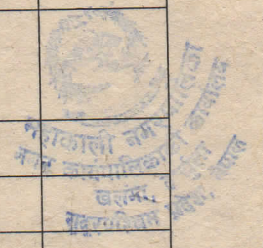 महाकाली नगरपालिका
नगर कार्यपालिकाको कार्यालय
खलंगा,
सुदूरपश्चिम प्रदेश, नेपाल